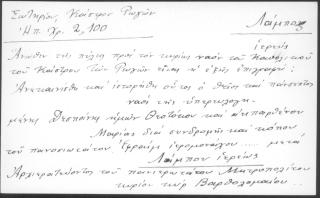 Σωτηρίου, Κάστρο Ρωγών
Λάμπος
Ηπ. Χρ. 2, 100
ἱερεύς
Ἄνωθεν τῆς πύλης πρὸς τὸν κυρίως ναὸν τοῦ Καθολικοῦ
τοῦ Κάστρου τῶν Ρωγῶν εἶναι ἡ ἑξῆς ἐπιγραφή:
Ἀνεκαινίσθη καὶ ἱστορήθη οὗτος ὁ θεῖος καὶ πάνσεπτος
ναὸς τῆς ὑπερευλογη-
μένης Δεσποίνης ἡμῶν Θεοτόκου καὶ ἀειπαρθένου
Μαρίας διὰ συνδρομῆς καὶ κόπου
τοῦ πανοσιωτάτου Ἐφραὶμ ἱερομονάχου ..... μετὰ
Λάμπου ἱερέως
Ἀρχιερατεύοντος τοῦ πανιερωτάτου Μητροπολίτου
κυρίου κὺρ Βαρθολομαίου ...